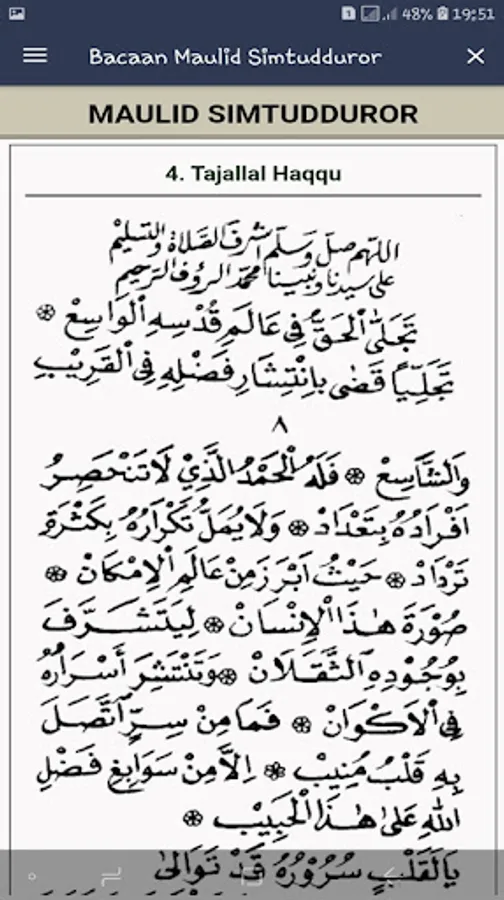 48% 19:51
Bacaan Maulid Simtudduror
MAULID SIMTUDDUROR
4. Tajallal Haqqu
اَللّٰهُمَّ صَلِّ وَسَلِّمْ اَشْرَفَ الصَّلَاةِ وَالتَّسْلِيْمِ
عَلٰى سَيِّدِنَا وَنَبِيِّنَا مُحَمَّدٍ الرَّؤُفِ الرَّحِيْمِ
تَجَلَّى الْحَقُّ فِي عَالَمِ قُدْسِهِ الْوَاسِعْ
تَجَلِّيًا قَضٰى بِانْتِشَارِ فَضْلِهِ فِي الْقَرِيْبِ
٨
وَالشَّاسِعْ فَلَهُ الْحَمْدُ الَّذِيْ لَا تَنْحَصِرُ
اَفْرَادُهُ بِتَعْدَادْ وَلَا يُمَلُّ تَكْرَارُهُ بِكَثْرَةِ
تَرْدَادْ حَيْثُ اَبْرَزَ مِنْ عَالَمِ الْاِمْكَانْ
صُوْرَةَ هٰذَا الْاِنْسَانْ لِيَتَشَرَّفَ
بِوُجُوْدِهِ الثَّقَلَانْ وَتَنْتَشِرَ أَسْرَارُهُ
فِي الْاَكْوَانْ فَمَا مِنْ سِرٍّ اتَّصَلَ
بِهِ قَلْبُ مُنِيْبْ اِلَّا مِنْ سَوَابِغِ فَضْلِ
اللّٰهِ عَلٰى هٰذَا الْحَبِيْبْ
يَالَقَلْبٍ سُرُوْرُهُ قَدْ تَوَالٰى